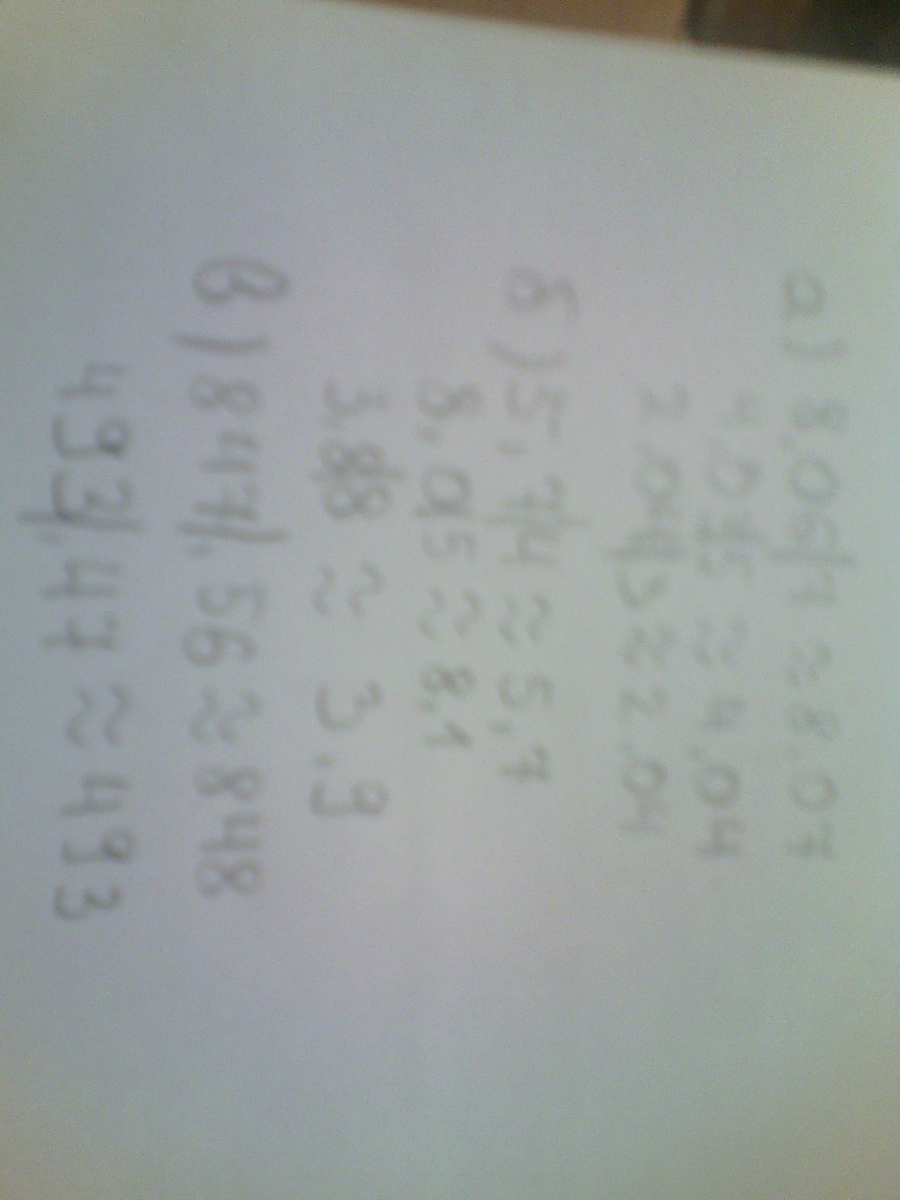 а) 8,06|7 ≈ 8,07
4,03|5 ≈ 4,04
2,04|3 ≈ 2,04
б) 5,7|4 ≈ 5,7
8,0|5 ≈ 8,1
3,8|8 ≈ 3,9
в) 847|,56 ≈ 848
493|,47 ≈ 493